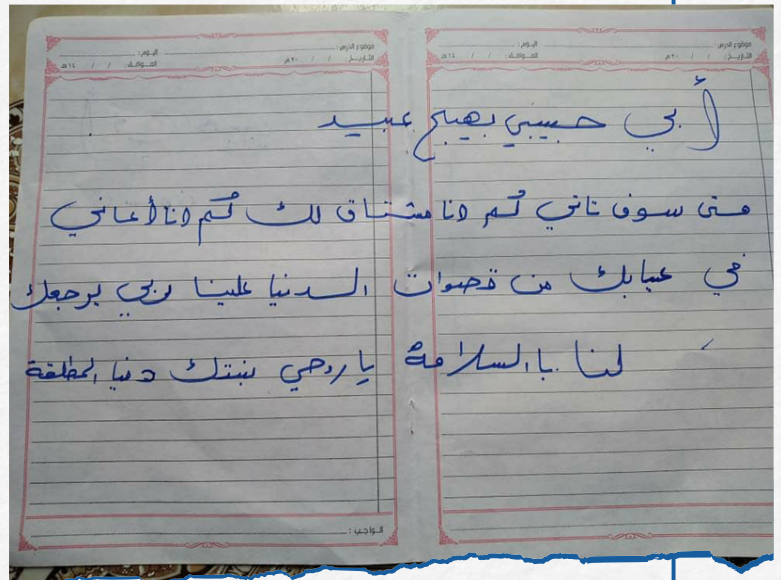 موضوع الدرس : اليوم :
التاريخ : / / ٢٠م الموافق : / / ١٤هـ
موضوع الدرس : اليوم :
التاريخ : / / ٢٠م الموافق : / / ١٤هـ
أبي حبيبي بهيج عبيد
متى سوف تاتي كم انا مشتاق لك كم انا أعاني
في غيابك من قصوات الدنيا علينا ربي يرجعك
لنا باالسلامة يا روحي بنتك دنيا المطلقة
الواجب :